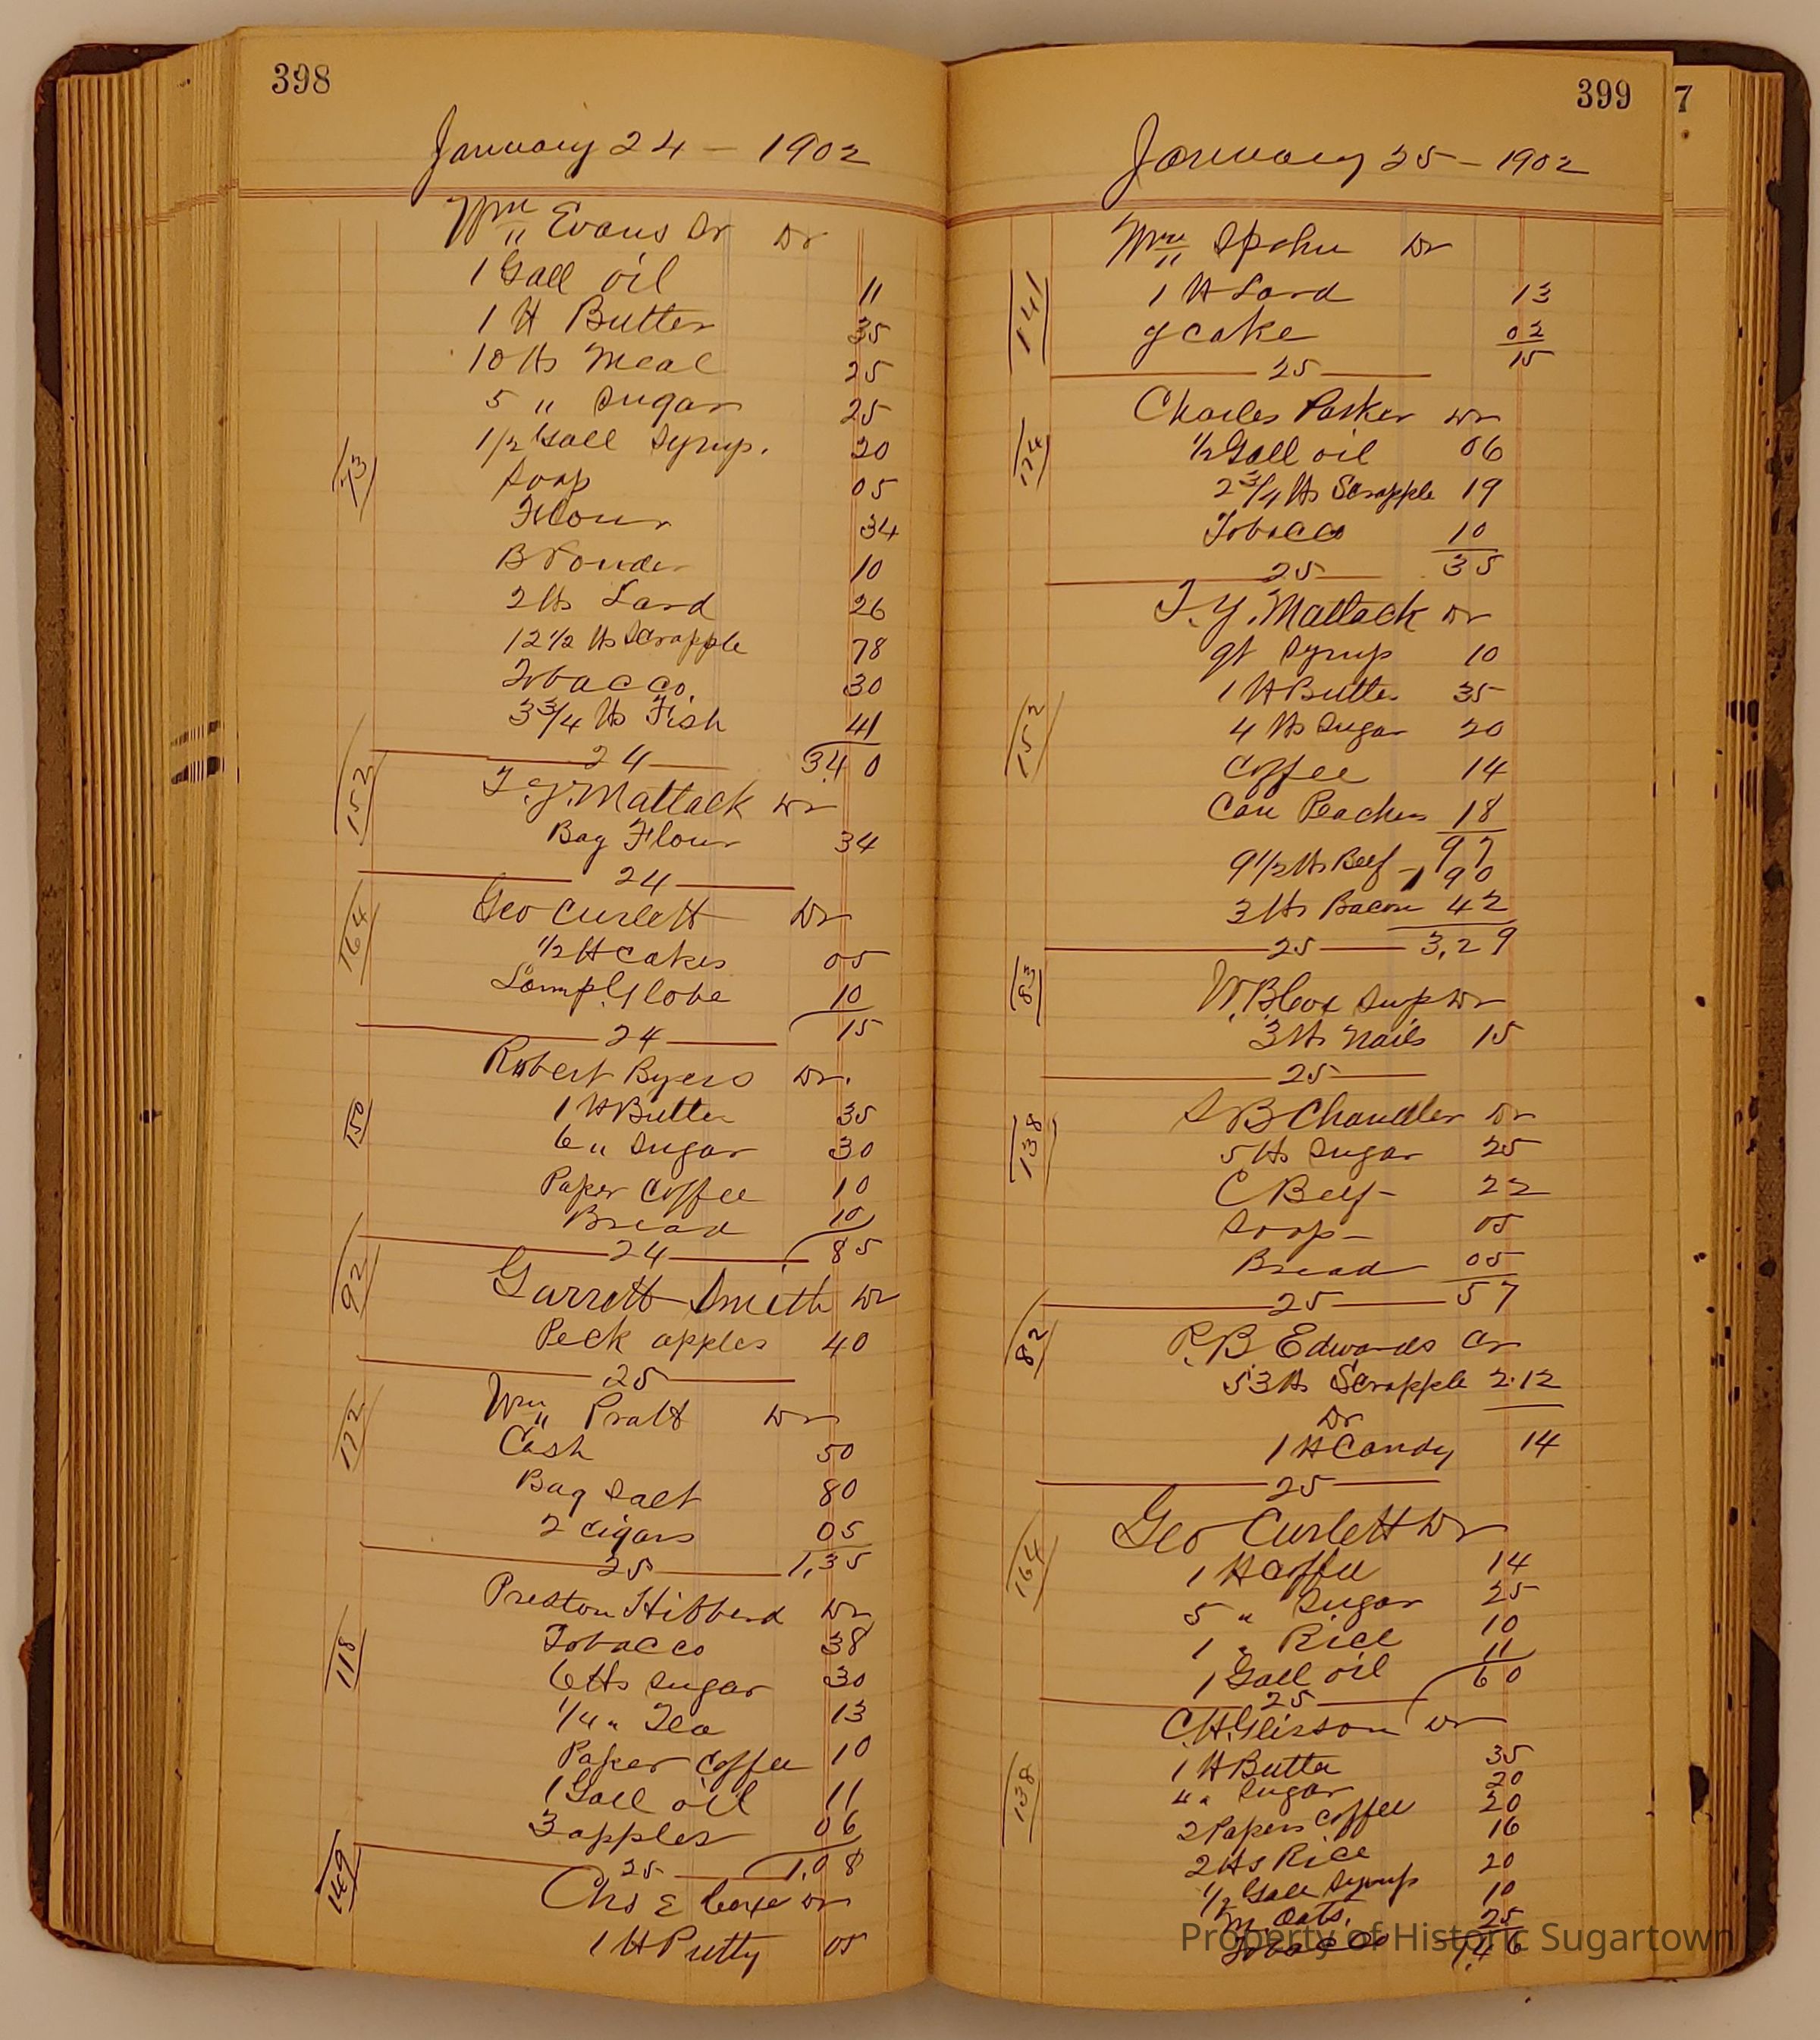 398
January 24 - 1902
Wm Evans Sr Dr
1 Gall oil 11
1 lb Butter 35
10 lbs Meal 25
5 " Sugar 25
1/2 Gall Syrup. 20
73
Soap 05
Flour 34
B Powder 10
2 lbs Lard 26
12 1/2 lbs Scrapple 78
Tobacco. 30
3 3/4 lbs Fish 41
24 3.40
152
T. Y. Mattack Dr
Bag Flour 34
24
164
Geo Curlett Dr
1/2 lb Cakes 05
Lamp Globe 10
24 15
Robert Byers Dr.
150
1 lb Butter 35
6 " Sugar 30
Paper Coffee 10
Bread 10
24 85
92
Garrett Smith Dr
Peck apples 40
25
172
Wm Pratt Dr
Cash 50
Bag Salt 80
2 Cigars 05
25 1,35
Preston Hibberd Dr
118
Tobacco 38
6 lbs Sugar 30
1/4 " Tea 13
Paper Coffee 10
1 Gall oil 11
3 apples 06
25 1,08
149
Chs E Dr
1 lb Putty 05
399
7
January 25 - 1902
Wm Spohn Dr
141
1 lb Lard 13
y cake 02
15
25
Charles Parker Dr
174
1/2 Gall oil 06
2 3/4 lbs Scrapple 19
Tobacco 10
25 35
T. Y. Mattack Dr
qt Syrup 10
152
1 lb Butter 35
4 lbs Sugar 20
Coffee 14
Can Peaches 18
97
9 1/2 lbs Beef - 1 90
3 lbs Bacon 42
25 3,29
83
W. B. Cox Sup Dr
3 lbs nails 15
25
138
S B Chandler Dr
5 lbs Sugar 25
C Beef - 22
Soap - 05
Bread 05
25 57
82
R. B Edwards Cr
53 lb Scrapple 2.12
Dr
1 lb Candy 14
25
Geo Curlett Dr
164
1 lb Coffee 14
5 " Sugar 25
1 " Rice 10
1 Gall oil 11
60
25
C. H. Glisson Dr
138
1 lb Butter 35
4 " Sugar 20
2 Papers Coffee 20
2 lbs Rice 16
1/2 Gall Syrup 20
M. Oats. 10
Tobacco 25
1.46
Property of Historic Sugartown